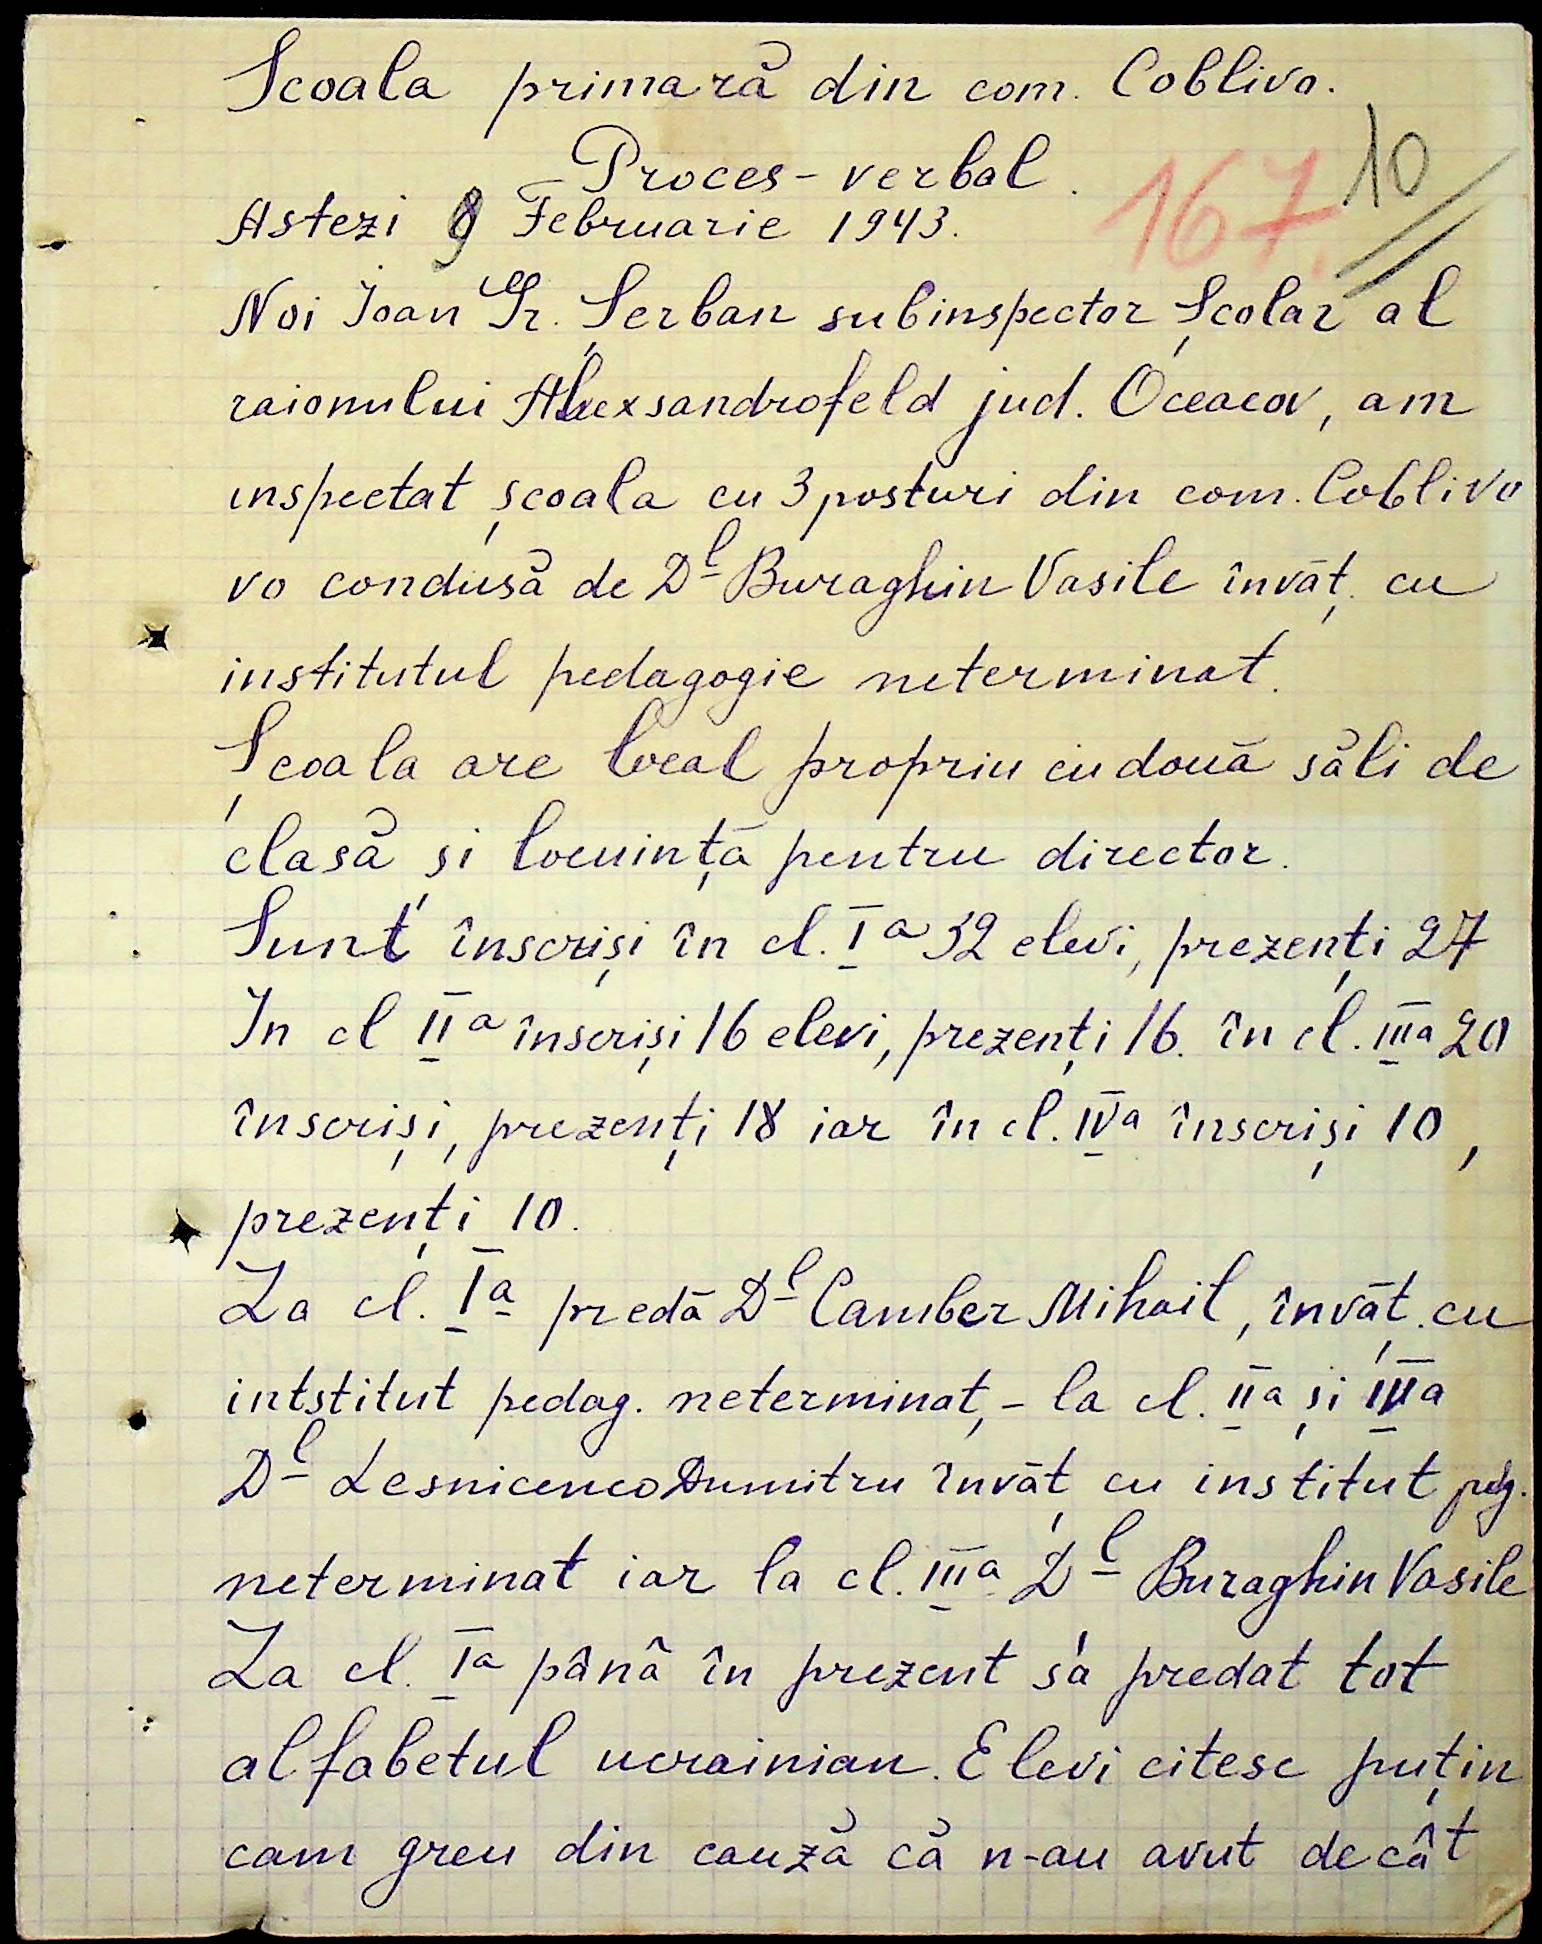 Scoala primară din com. Coblivo.
Proces-verbal.
10
167.
Astezi 9 Februarie 1943.
Noi Ioan Gr. Șerban subinspector Școlar al
raionului Alexsandrofeld jud. Oceacov, am
inspectat școala cu 3 posturi din com. Coblivo
vo condusă de Dl Buraghin Vasile învăț. cu
institutul pedagogic neterminat.
Școala are local propriu cu două săli de
clasă și locuință pentru director.
Sunt înscriși în cl. Ia 32 elevi, prezenți 27
In cl IIa înscriși 16 elevi, prezenți 16. în cl. IIIa 20
înscriși, prezenți 18 iar în cl. IVa înscriși 10,
prezenți 10.
La cl. Ia predă Dl Camber Mihail, învăț. cu
intstitut pedag. neterminat,- la cl. IIa și
Dl Lesnicenco Dumitru învăț cu institut
neterminat iar la cl. IIIa Dl Buraghin Vasile
La cl. Ia până în prezent s'a predat tot
alfabetul ucrainian. Elevi citesc puțin
cam greu din cauză că n-au avut decât